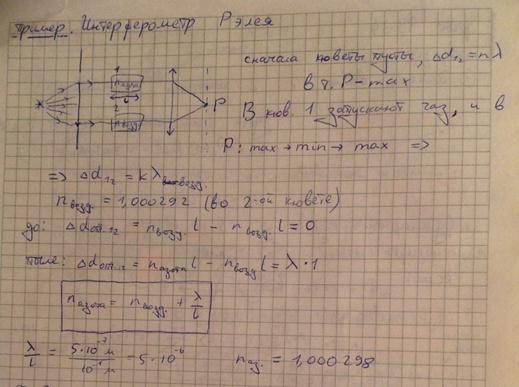 Пример. Интерферометр Рэлея
сначала кюветы пусты, Δd₁₂ = nλ
в т. P – max
В кюв. 1 запускают газ, и в
P: max → min → max =>
1
n азота
l
2
n возд.
P
=> Δd₁₂ = kλ возд.
n возд. = 1,000292 (во 2-ой кювете)
до: Δd опт.12 = n возд. l – n возд. l = 0
после: Δd опт.12 = n азота l – n возд. l = λ·1
n азота = n возд. + λ/l
λ/l = 5·10⁻⁷ м / 10⁻¹ м = 5·10⁻⁶ n аз. = 1,000298